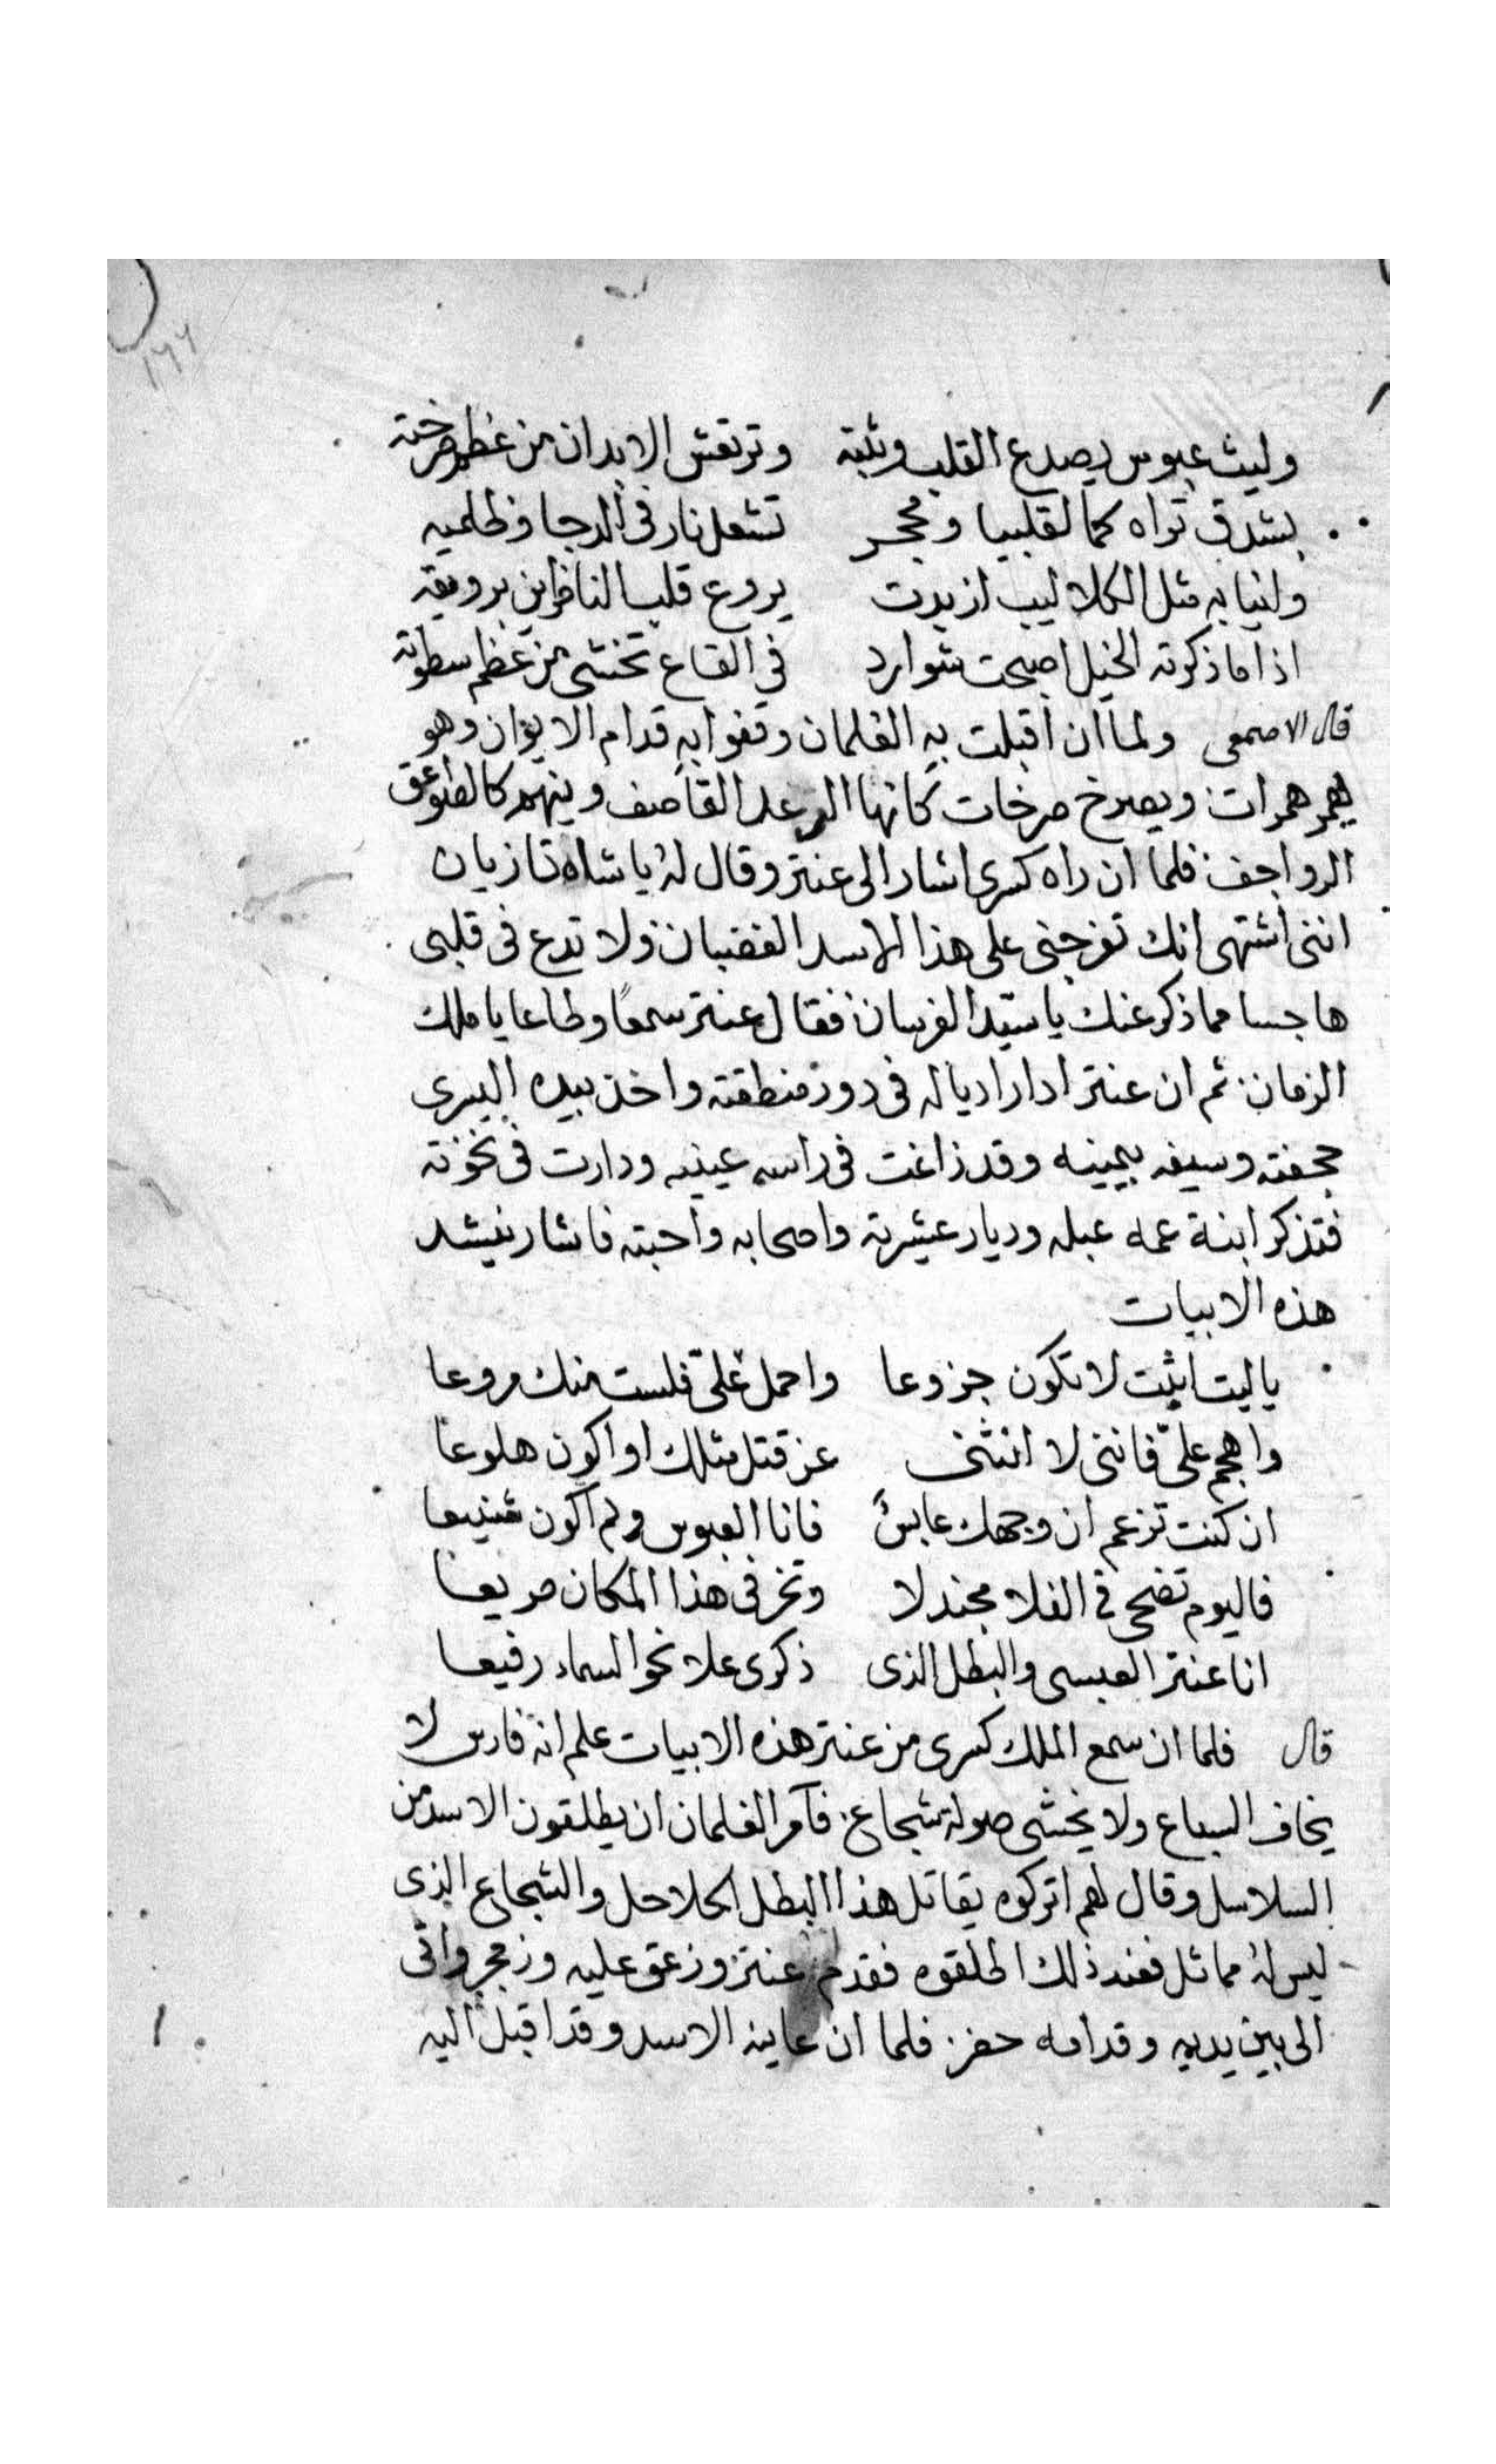 ١٧٧
وليث عبوس يصدع القلب وثبته وترتعش الابدان من عظم صرخته
بشدق تراه كما لقليبا ومحجر تشعل نار في الدجا وظلميه
ولنيابه مثل الكلاليب ازبدت يروع قلب الناظرين برويته
اذا ما ذكرته الخيل اصبحت شوارد في القاع تخشى من عظم سطوته
قال الاصمعى ولما ان اقبلت به الغلمان وقفوا به قدام الايوان وهو
يهمر همرات ويصرخ صرخات كانها الرعد القاصف وينهم كالصواعق
الرواجف فلما ان راه كسرى اشار الى عنتر وقال له يا شاه تازيان
اننى اشتهى انك تفرجنى على هذا الاسد الغضبان ولا تدع فى قلبى
هاجسا مما ذكر عنك يا سيّد الفرسان فقال عنتر سمعًا وطاعا يا ملك
الزمان ثم ان عنتر ادار اذياله فى دور منطقته واخذ بيده اليسرى
جحفته وسيفه بيمينه وقد زاغت فى راسه عينيه ودارت فى نخوته
فتذكر ابنة عمه عبله وديار عشيرته واصحابه واحبته فاشار ينشد
هذه الابيات
يا ليت اثبت لا تكون جزوعا واحمل علىّ فلست منك مروعا
واهجم علىّ فاننى لا انثنى عن قتل مثلك او اكون هلوعا
ان كنت تزعم ان وجهك عابسٌ فانا العبوس ولم اكون شنيعا
فاليوم تضحى فى الفلا مجندلا وتخر فى هذا المكان صريعا
انا عنتر العبسى والبطل الذى ذكرى علا نحو السماء رفيعا
قال فلما ان سمع الملك كسرى من عنتر هذه الابيات علم انه فارس لا
يخاف السباع ولا يخشى صولة شجاع فآمر الغلمان ان يطلقون الاسد من
السلاسل وقال لهم اتركوه يقاتل هذا البطل الحلاحل والشجاع الذى
ليس له مماثل فعند ذلك اطلقوه فقدم عنتر وزعق عليه وزمجر واتى
الى بين يديه وقدامه حفز فلما ان عاينه الاسد وقد اقبل اليه